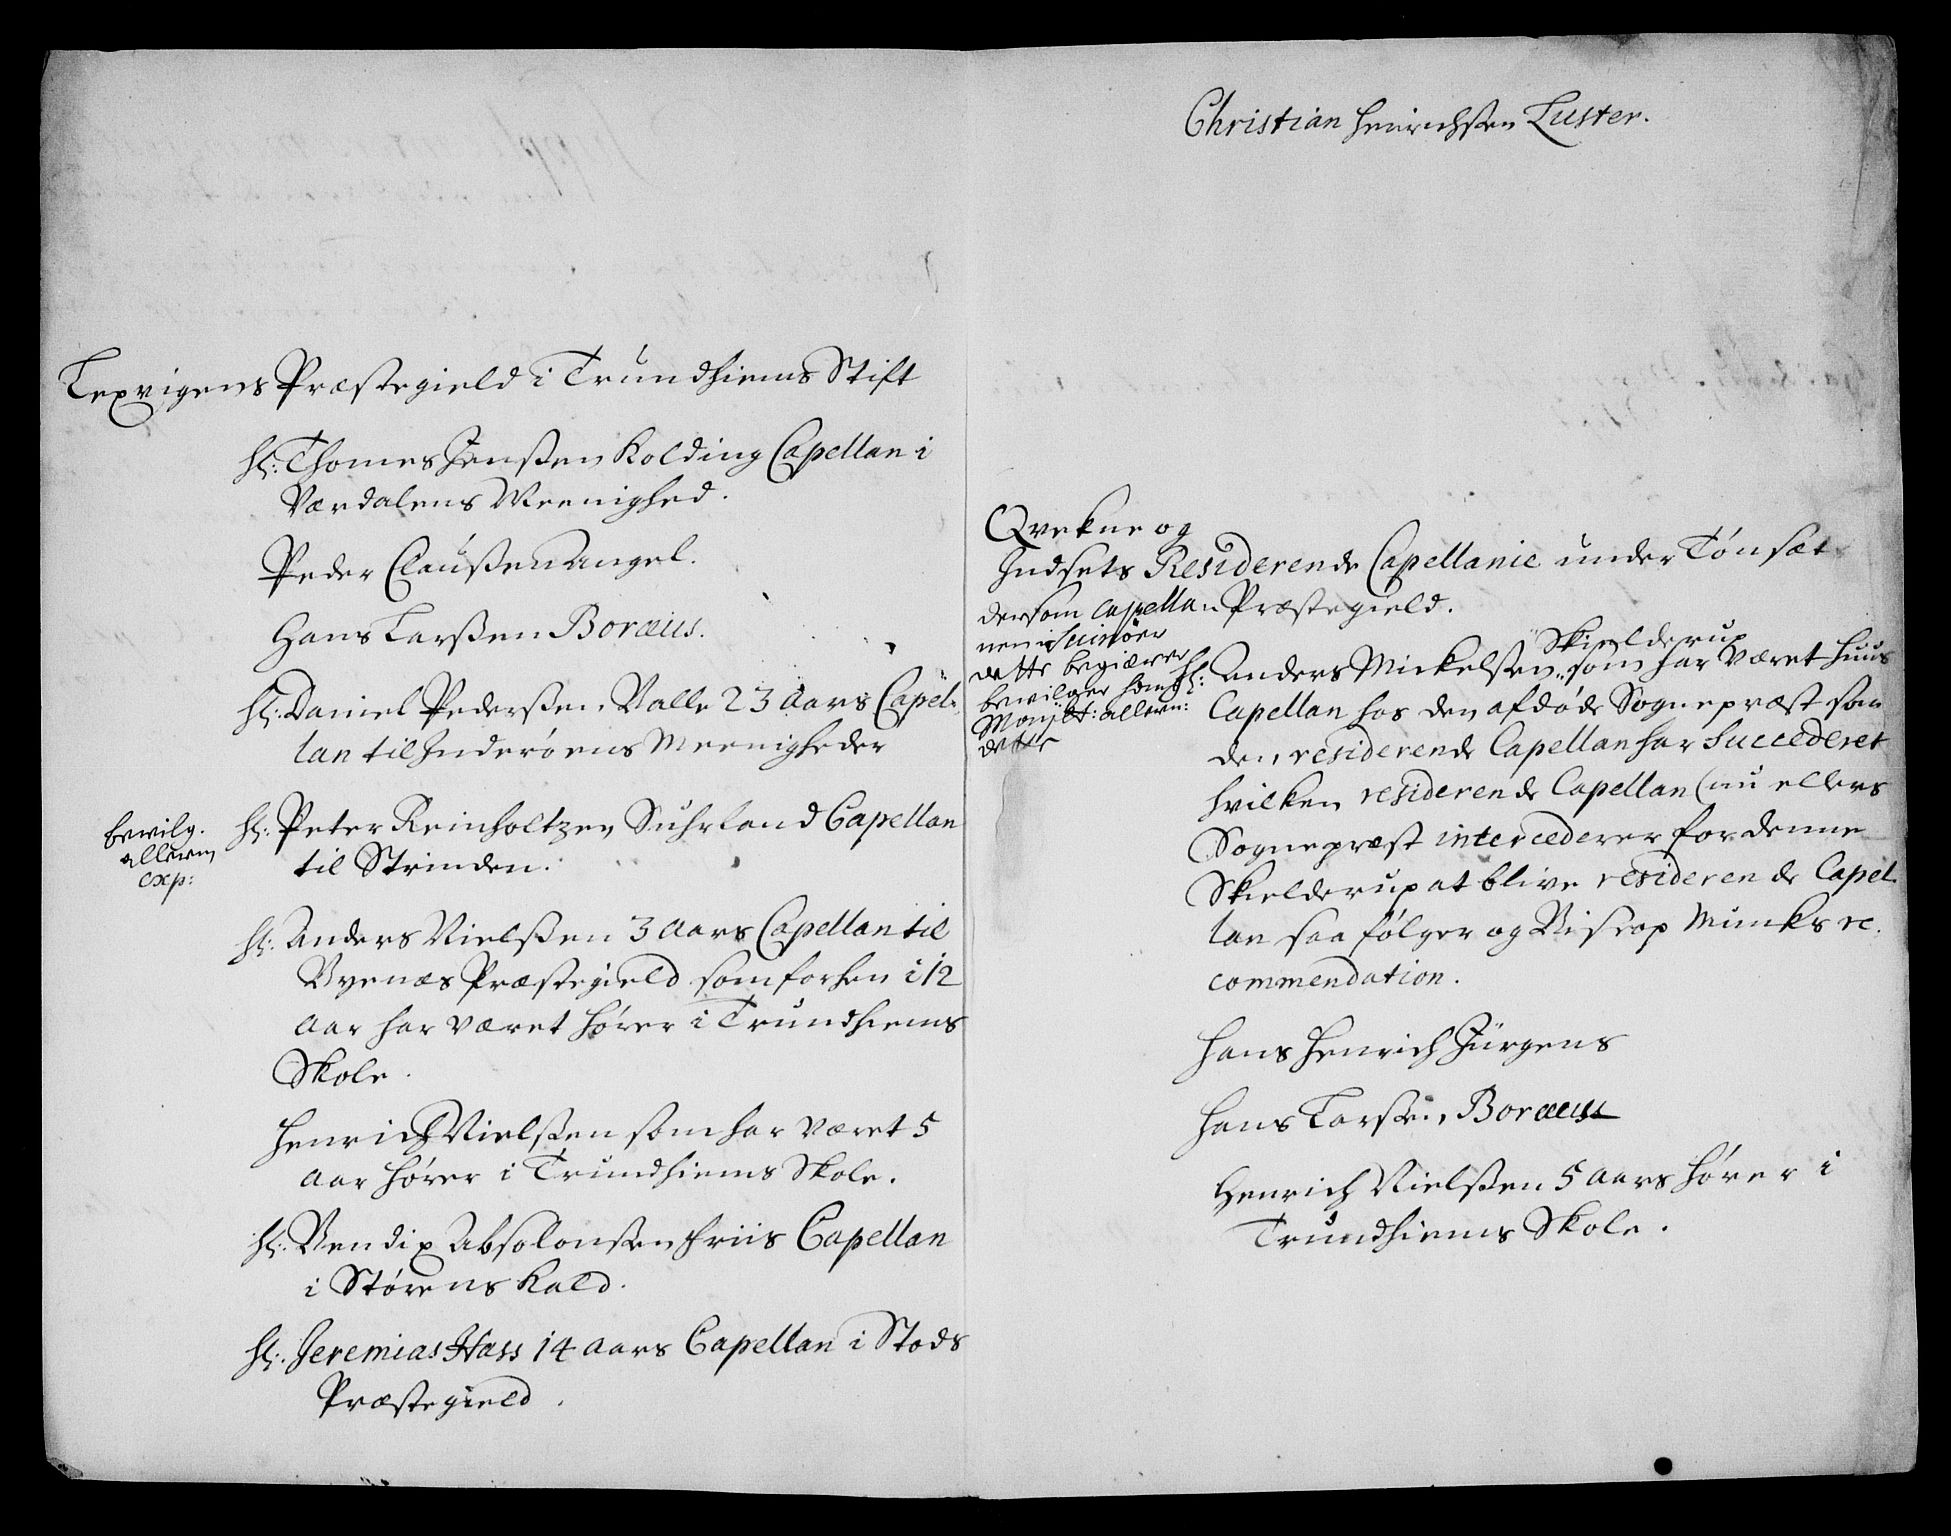 Lexvigens Præstegield i Trundhiems Stift
Hr: Thomes Jenssen Kolding Capellan i
Værdalens Meenighed.
Peder Claussen Angel.
Hans Larssen Boræus.
Hr: Daniel Pederssen Balle 23 Aars Capel-
lan til Inderøens Meenigheder
bevilg.
allern
exp:
Hr: Peter Reinholtzen Suhrland Capellan
til Strinden.
Hr: Anders Nielssen 3 Aars Capellan til
Bynæs Præstegield som forhen i 12
Aar har været Hører i Trundhiems
Skole.
Henrich Nielssen som har været 5
Aar Hører i Trundhiems Skole.
Hr: Bendix Absolonssen Friis Capellan
i Størens Kald.
Hr: Jeremias Hass 14 Aars Capellan i Stods
Præstegield.
Christian Henrichssen Luster.
Qvekne og
Indsets Residerende Capellanie under Tønsæt
Præstegield.
dersom Capella
nen i
dette begiærer
bevilger hans
Mayst: allern:
dette
Hr: Anders Mickelssen Skielderup som har været Huus
Capellan hos den afdøde Sognepræst som
den residerende Capellan har Succederet
hvilken residerende Capellan (nu ellers
Sognepræst intercederer for denne
Skielderup at blive residerende Capel-
lan saa følger og Biscop Munks re-
commendation.
Hans Henrich Jürgens
Hans Larssen Boræus
Henrich Nielssen 5 Aars Hører i
Trundhiems Skole.